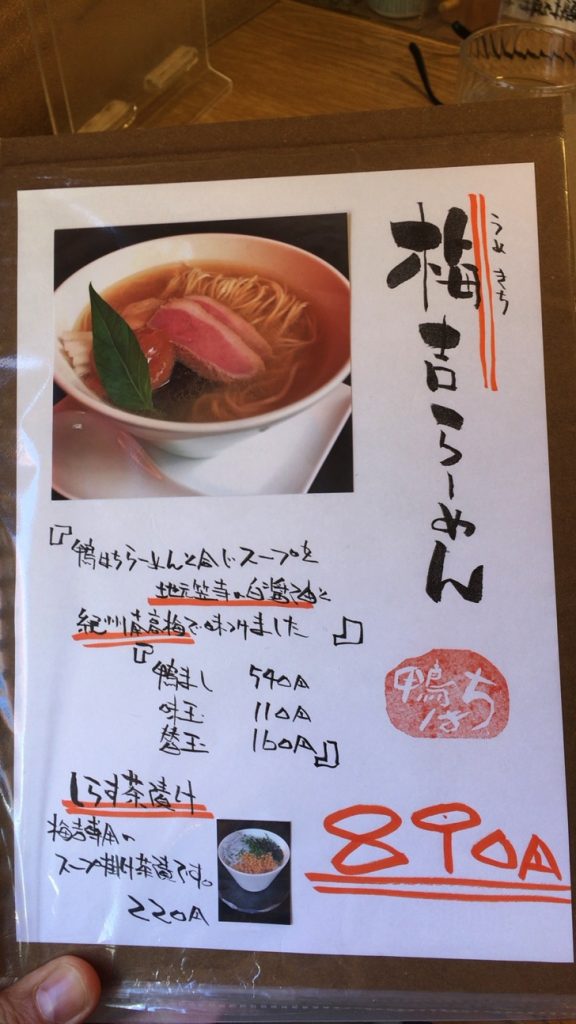 梅吉らーめん
うめきち
『鴨はちらーめんと同じスープを
地元笠寺の白醤油と
紀州南高梅で味つけました』
『鴨まし 540円
味玉 110円
替玉 160円』
鴨はち
890円
しらす茶漬け
梅吉専用の
スープ掛け茶漬です。
220円